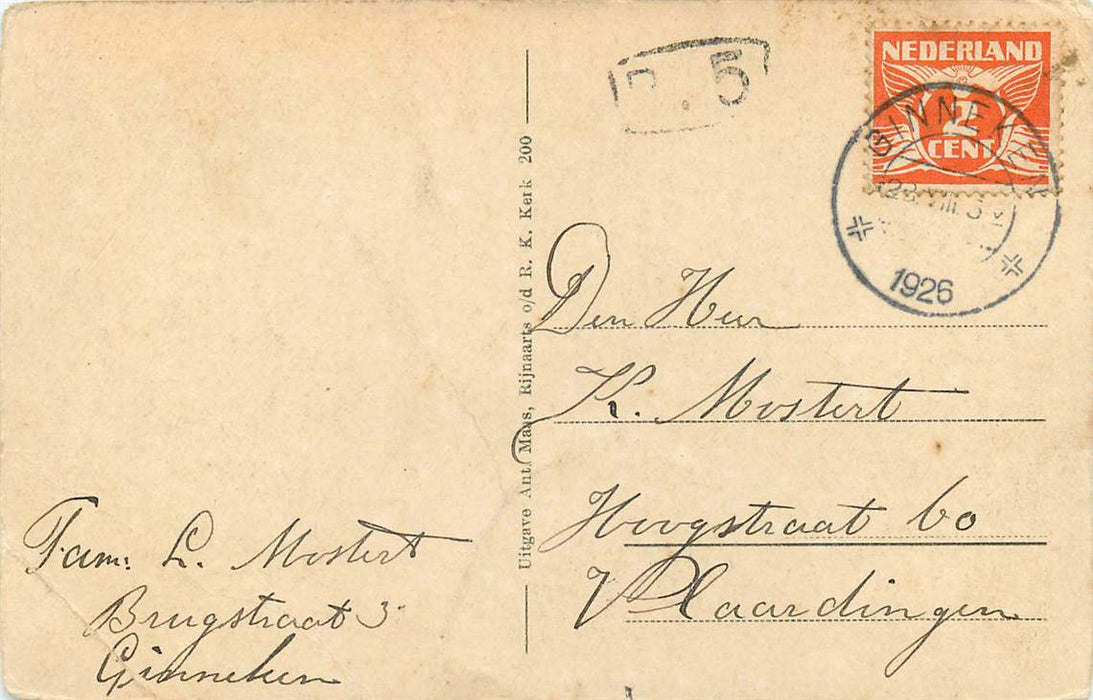 NEDERLAND
2
CENT
GINNEKEN
1926
5
Uitgave Ant. Maas, Rijnaarts o/d R. K. Kerk 200
Den Heer
K. Mostert
Hoogstraat 60
Vlaardingen
Fam: L. Mostert
Brugstraat 3
Ginneken